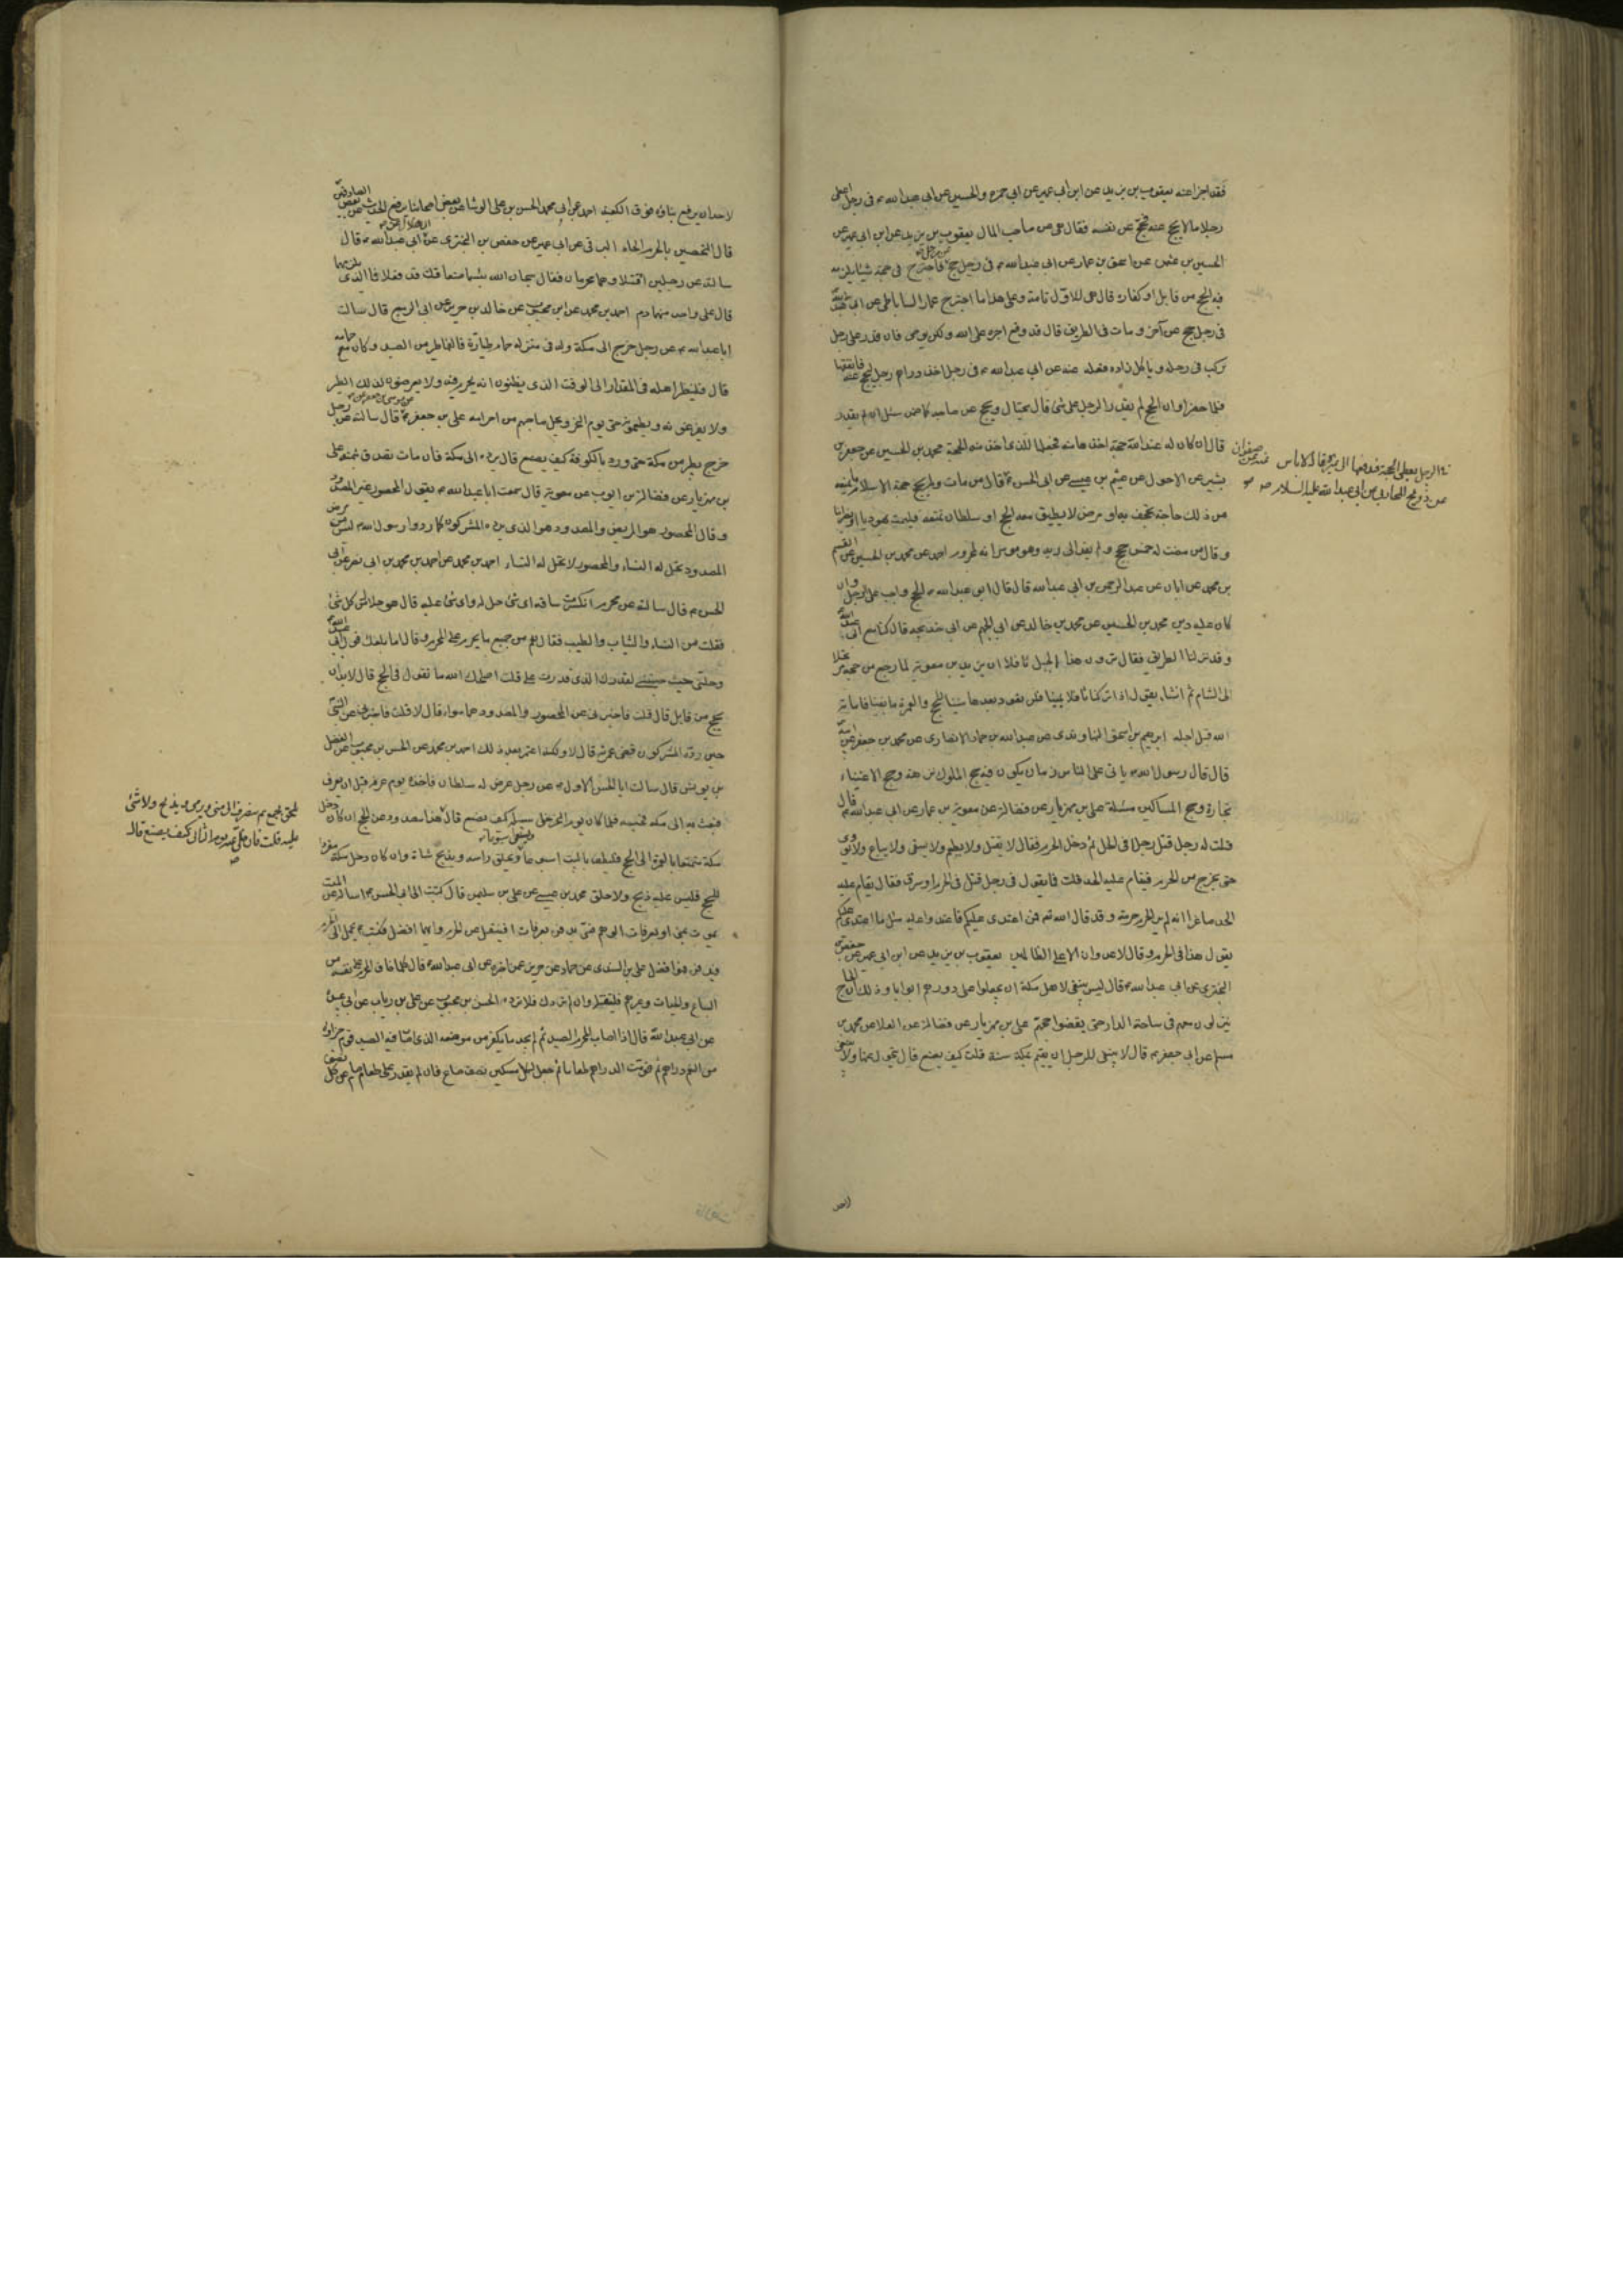 فقد اجزا عنه يعقوب بن يزيد عن ابن ابي عمير عن ابي حمزه والحسين عن ابي عبد الله ع في رجل اعطى
رجلا مالا يحج عنه فحج عن نفسه فقال هي عن صاحب المال يعقوب بن يزيد عن ابن ابي عمير عن
الحسين بن عثمن عمن اسحق بن عمار عن ابي عبد الله ع في رجل حج فاجترح في حجه شيئا يلزمه
فيه الحج من قابل او كفارة قال هي للاول تامة وعلى هذا ما اجترح عمار الساباطي عن ابي عبد الله
في رجل حج عن آخر ومات في الطريق قال قد وقع اجره على الله ولكن يوصى فان قدر على رجل
يركب في رحله وياكل زاده فعله عنه عن ابي عبد الله ع في رجل اخذ دراهم رجل ليحج عنه فانفقها
فلما حضر اوان الحج لم يقدر الرجل على شئ قال يحتال ويحج عن صاحبه كما ضمن سئل ان لم يقدر
قال ان كان له عند الله حجة اخذها منه فجعلها للذي اخذ منه الحجة محمد بن الحسين عن جعفر بن
بشير عن الاحول عن عثيم بن عيسى عن ابي الحسن ع قال من مات ولم يحج حجة الاسلام لم يمنعه
من ذلك حاجة تجحف به او مرض لا يطيق معه الحج او سلطان تمنعه فليمت يهوديا او نصرانيا
وقال من مضت له خمس حجج ولم يفد الى ربه وهو موسر انه لمحروم احمد عن محمد بن الحسين عن القسم
بن محمد عن ابان عن عبد الرحمن بن ابي عبد الله قال قال ابو عبد الله ع الحج واجب على الرجل وان
كان عليه دين محمد بن الحسين عن محمد بن خالد عن ابي الجهم عن ابي خديجه قال كنا مع ابي عبد الله
وقد نزلنا الطريق فقال ترون هذا الجبل ثافلا ان يزيد بن معوية لما رجع من حجه مرتحلا
الى الشام ثم انشا يقول اذا تركنا ثافلا يمينا فلن نعود بعدها سنينا للحج والعمرة ما بقينا فاماته
الله قبل اجله ابرهيم بن اسحق النهاوندي عن عبد الله بن حماد الانصاري عن محمد بن جعفر عن ابيه
قال قال رسول الله ص ياتي على الناس زمان يكون فيه حج الملوك نزهة وحج الاغنياء
تجارة وحج المساكين مسئلة علي بن مهزيار عن فضالة عن معوية بن عمار عن ابي عبد الله ع قال
قلت له رجل قتل رجلا في الحل ثم دخل الحرم فقال لا يقتل ولا يطعم ولا يسقى ولا يباع ولا يؤوى
حتى يخرج من الحرم فيقام عليه الحد قلت فما يقول في رجل قتل في الحرم او سرق فقال يقام عليه
الحد صاغرا انه لم ير للحرم حرمة وقد قال الله تع فمن اعتدى عليكم فاعتدوا عليه بمثل ما اعتدى عليكم
يقول هذا في الحرم وقال لا عدوان الا على الظالمين يعقوب بن يزيد عن ابن ابي عمير عن حفص بن
البختري عن ابي عبد الله ع قال ليس ينبغي لاهل مكة ان يجعلوا على دورهم ابوابا وذلك ان الحاج
ينزلون معهم في ساحة الدار حتى يقضوا حجهم علي بن مهزيار عن فضالة عن العلا عن محمد بن
مسلم عن ابي جعفر ع قال لا ينبغي للرجل ان يقيم بمكة سنة قلت كيف يصنع قال يتحول عنها ولا ينبغي
في الرجل يعطى الحجة فيدفعها الى غيره قال لا باس
عن ذريح المحاربي عن ابي عبد الله عليه السلام
لاحد ان يرفع بناؤه فوق الكعبة احمد عن ابي محمد الحسن بن علي الوشا عن بعض اصحابنا يرفع الحديث عن بعض الصادقين
قال التحصين بالحرم الحاد البرقي عن ابن ابي عمير عن حفص بن البختري عن ابي عبد الله ع قال
سالته عن رجلين اقتتلا وهما محرمان فقال سبحان الله بئسما صنعا قلت قد فعلا فما الذي يلزمهما
قال على واحد منهما دم احمد بن محمد عن ابن محبوب عن خالد بن جرير عن ابي الربيع قال سالت
ابا عبد الله ع عن رجل خرج الى مكة وله في منزله حمام طيارة فالفها طير من الصيد وكان مع حمامه
قال فلينظر اهله في المقدار الى الوقت الذي يظنون انه يحرم فيه ولا يعرضون لذلك الطير
ولا يفزعونه ويطعمونه حتى يوم النحر ويحل صاحبهم من احرامه علي بن جعفر ع قال سالته عن رجل
خرج بطير من مكة حتى ورد به الكوفة كيف يصنع قال يرده الى مكة فان مات تصدق بثمنه علي
بن مهزيار عن فضالة بن ايوب عن معوية قال سمعت ابا عبد الله ع يقول المحصور غير المصدود
وقال المحصور هو المريض والمصدود هو الذي يرده المشركون كما ردوا رسول الله ص ليس من مرض
المصدود تحل له النساء والمحصور لا تحل له النساء احمد بن محمد عن احمد بن محمد بن ابي نصر عن ابي
الحسن ع قال سالته عن محرم انكسرت ساقه اي شئ حل له واي شئ عليه قال هو حلال من كل شئ
فقلت من النساء والثياب والطيب فقال نعم من جميع ما يحرم على المحرم وقال اما بلغك قول ابي عبد الله
وحلني حيث حبستني لقدرك الذي قدرت علي قلت اصلحك الله ما تقول في الحج قال لا بد ان
يحج من قابل قال قلت فاخبرني عن المحصور والمصدود هما سواء قال لا قلت فاخبرني عن النبي
حين رده المشركون قضى عمرته قال لا ولكنه اعتمر بعد ذلك احمد بن محمد عن الحسن بن محبوب عن الفضل
بن يونس قال سالت ابا الحسن الاول ع عن رجل عرض له سلطان فاخذه يوم عرفه قبل ان يعرف
فبعث به الى مكه فحبسه فلما كان يوم النحر خلى سبيله كيف يصنع قال هذا مصدود عن الحج ان كان دخل
مكة متمتعا بالعمرة الى الحج فليطف بالبيت اسبوعا ويحلق راسه ويذبح شاة وان كان دخل مكة مفردا
للحج فليس عليه ذبح ولا حلق محمد بن عيسى عن علي بن سليمن قال كتبت الى ابي الحسن ع اساله عن الميت
يموت بمنى او بعرفات
يدفن بعرفات او ينقل الى الحرم وايهما افضل فكتب ع يحمل الى الحرم
فيدفن فهو افضل علي بن السندي عن حماد عن حريز عمن اخبره عن ابي عبد الله ع قال كلما خاف المحرم على نفسه من
السباع والحيات وغيرهم فليقتله وان لم يردك فلا ترده الحسن بن محبوب عن علي بن رياب عن ابي عبيدة
عن ابي عبد الله ع قال اذا اصاب المحرم الصيد ثم لم يجد ما يكفر من موضعه الذي اصاب فيه الصيد قوم جزاؤه
من النعم دراهم ثم قومت الدراهم طعاما ثم جعل لكل مسكين نصف صاع فان لم يقدر على طعام صام عن كل نصف
يلحق بجمع ثم ينصرف الى منى ويرمى ويذبح ولا شئ
عليه قلت فان خلى عنه يوم الثاني كيف يصنع قال